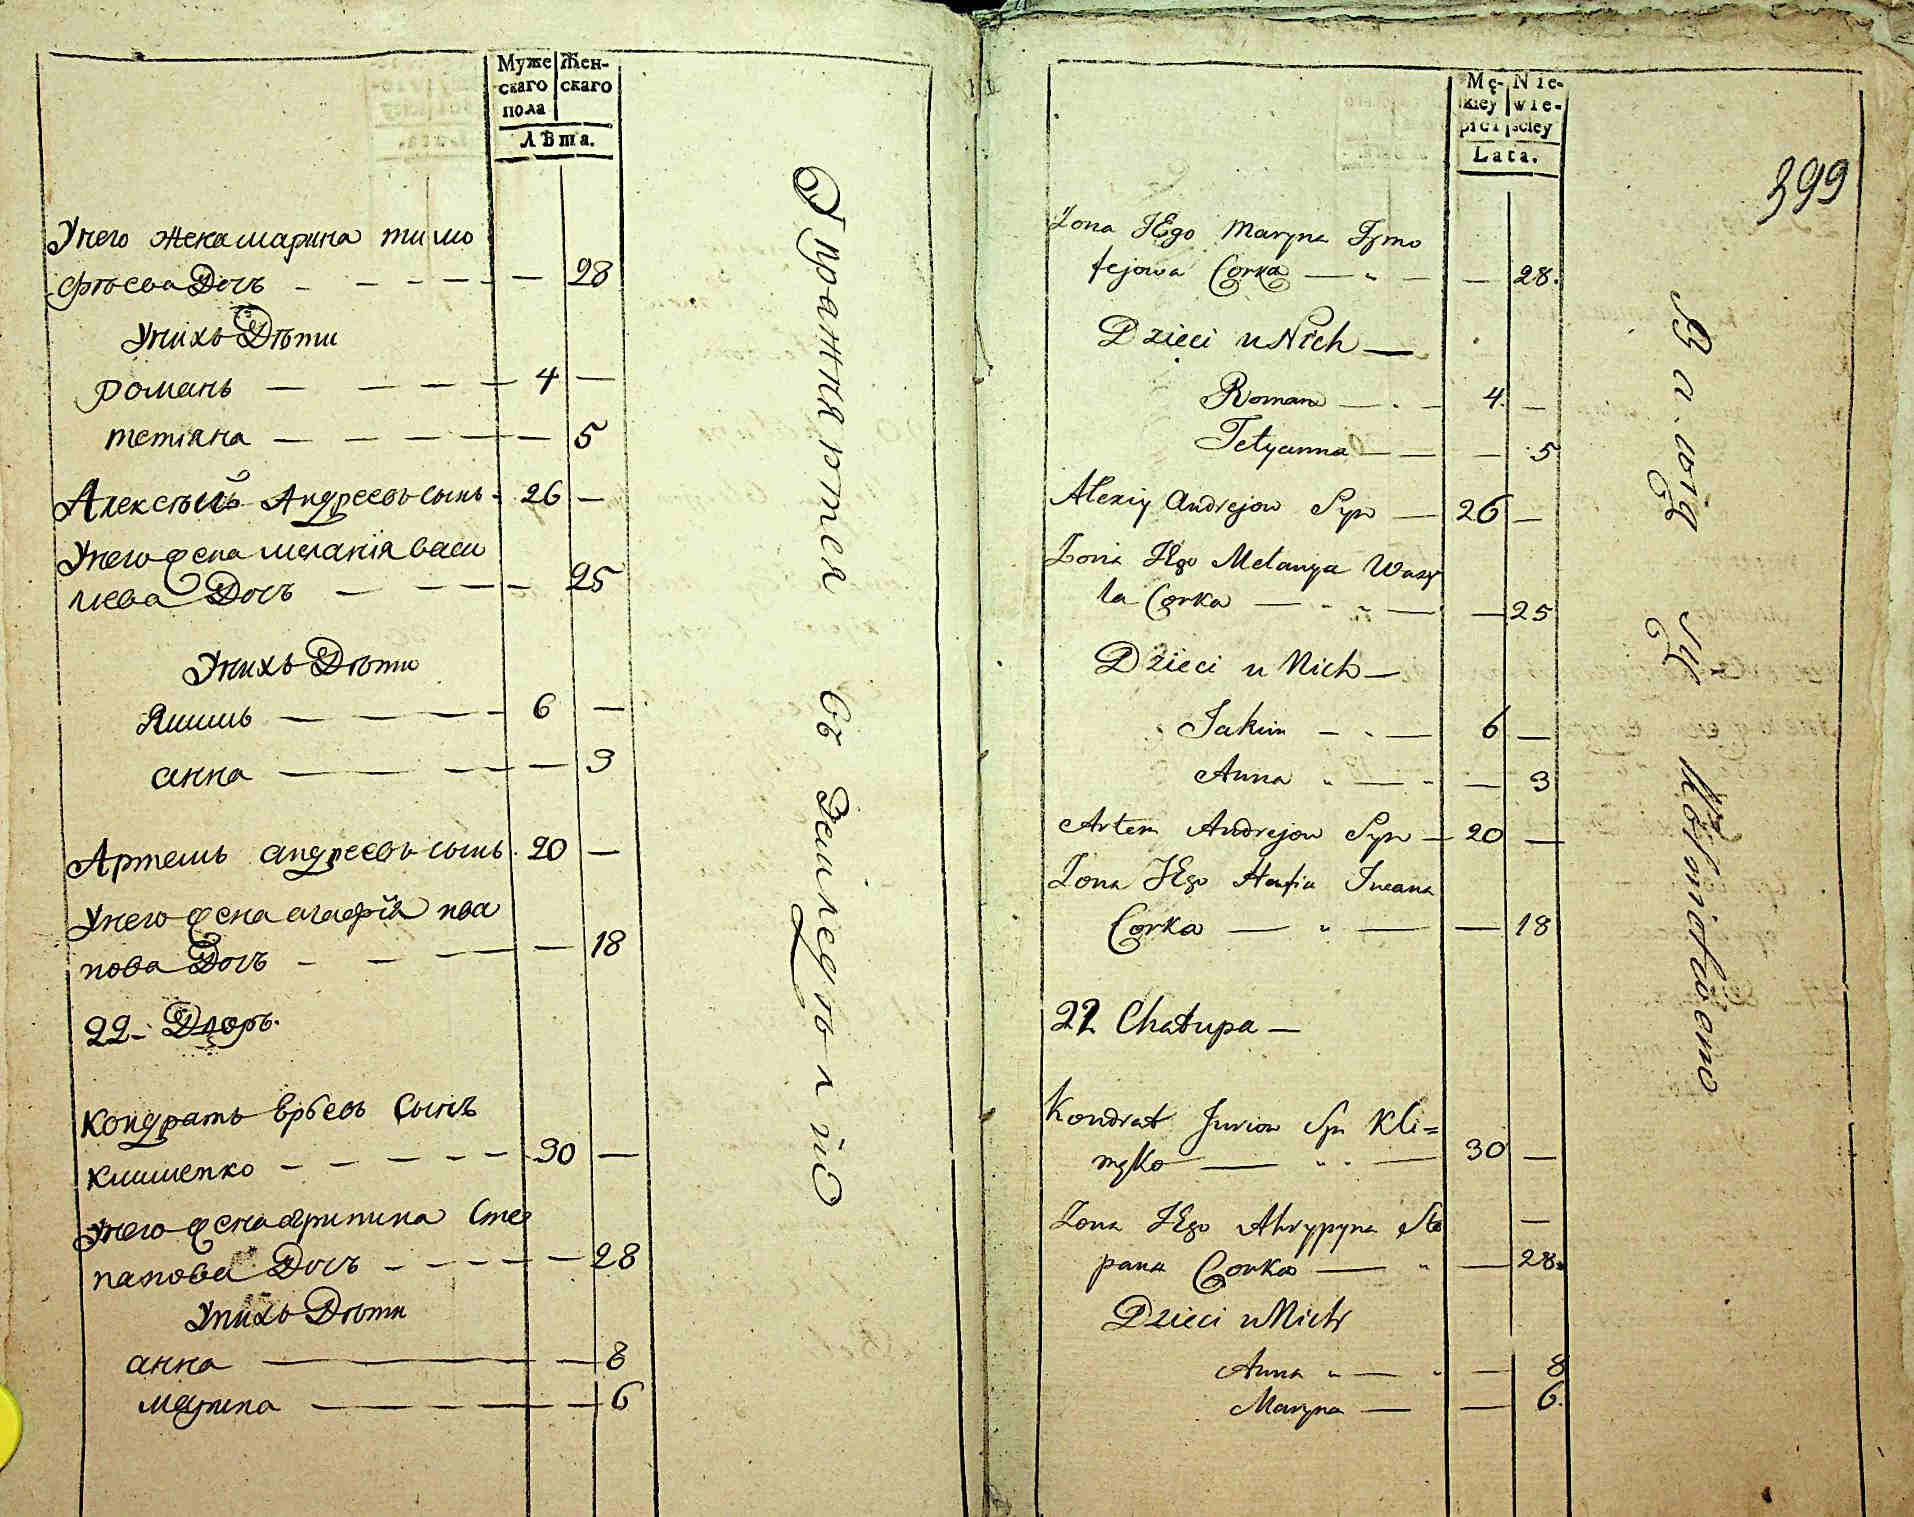 Муже Жен-
скаго скаго
пола
Лѣта.
У него жена марина тимо
фѣева Дочь — 28
У нихъ Дѣти
романъ 4 —
тетіяна — 5
Алексѣй Андреевъ сынъ 26 —
У него жена меланія васи
лиева Дочь — 25
У нихъ Дѣти
Якимъ 6 —
анна — 3
Артемъ андреевъ сынъ 20 —
У него жена агафія ива
нова Дочь — 18
22 Дворъ.
Кондратъ юрьевъ Сынъ
клименко 30 —
У него жена агрипина Сте
панова Дочь — 28
У нихъ Дѣти
анна — 8
марина — 6
Упражняются въ Земледѣліи
Mę- Nie-
kiey wie-
płci sciey
Lata.
399
Zona JEgo Maryna Tymo
fejowa Corka — 28.
Dzieci u Nich
Roman 4. —
Tetyanna — 5
Alexiy Andrejow Syn 26 —
Zona JEgo Melanya Wasy
la Corka — 25
Dzieci u Nich
Jakim 6 —
Anna — 3
Artem Andrejow Syn 20 —
Zona JEgo Hafia Iwana
Corka — 18
22 Chałupa
Kondrat Jurjow Syn Kli=
męko 30 —
Zona JEgo Ahrypyna Ste
pana Corka — 28.
Dzieci u Nich
Anna — 8
Maryna — 6.
Bawią się Rolnictwem